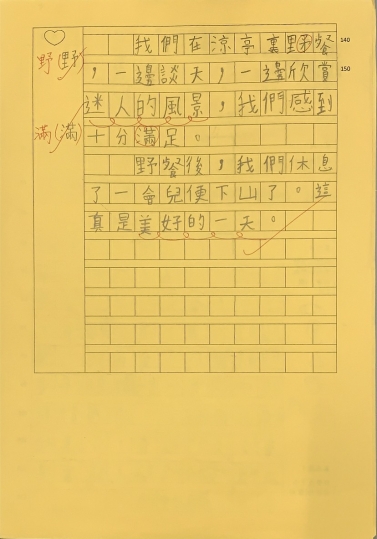 我們在涼亭裏野餐 140
野(野) ，一邊談天，一邊欣賞 150
迷人的風景，我們感到
滿(滿) 十分滿足。
野餐後，我們休息
了一會兒便下山了。這
真是美好的一天。